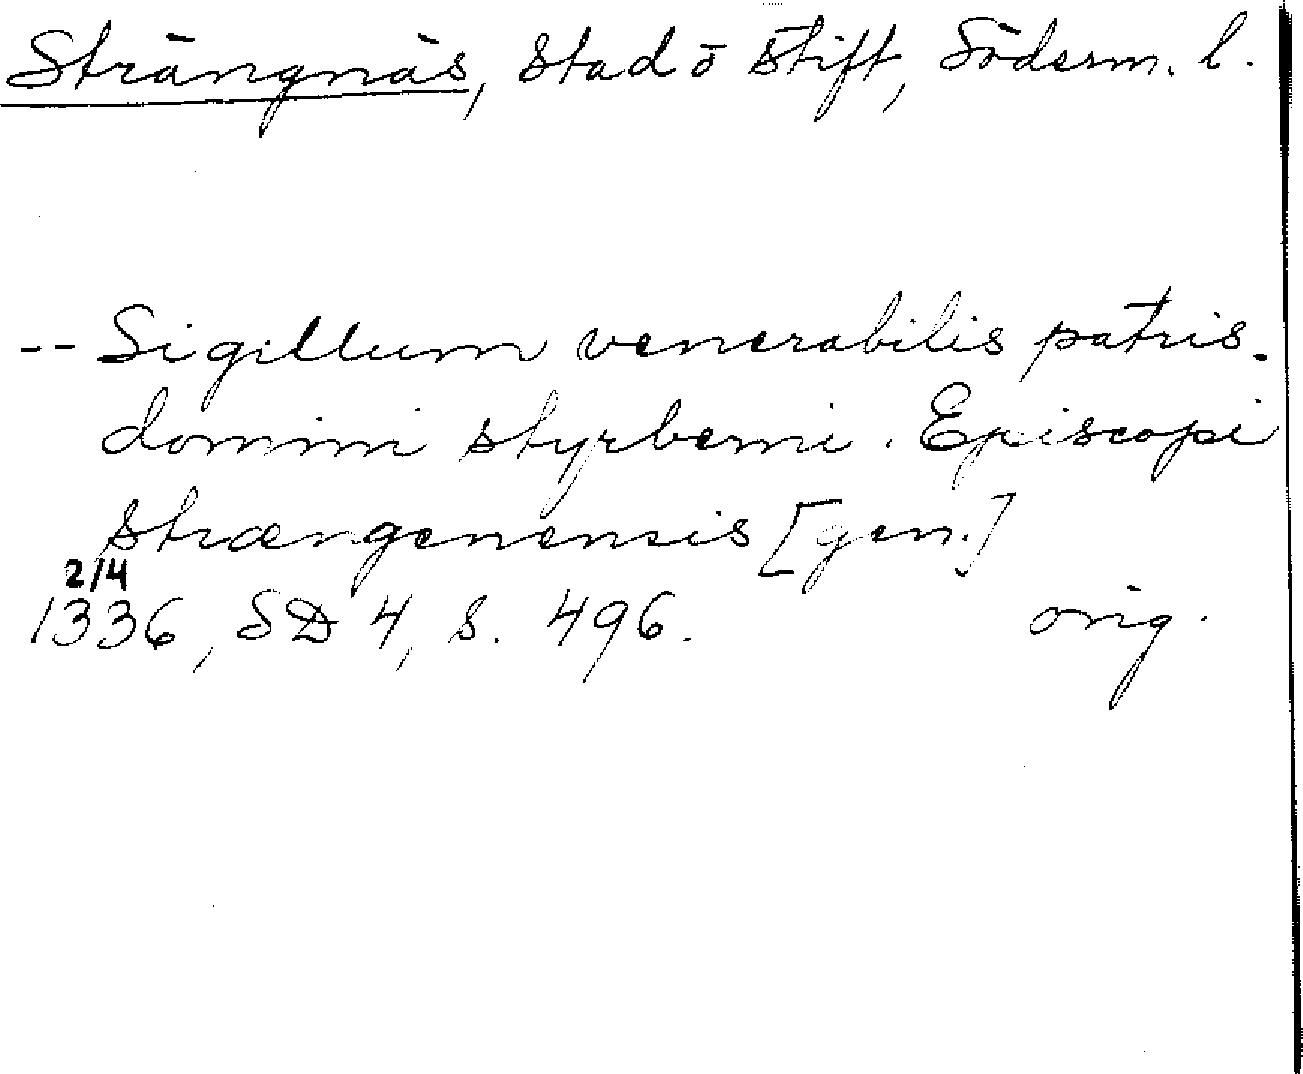 Strängnäs, stad o stift, Söderm. l.
-- Sigillum venerabilis patris.
domini styrberni. Episcopi
strængenensis [gen.]
2/4
1336, SD 4, s. 496. orig.